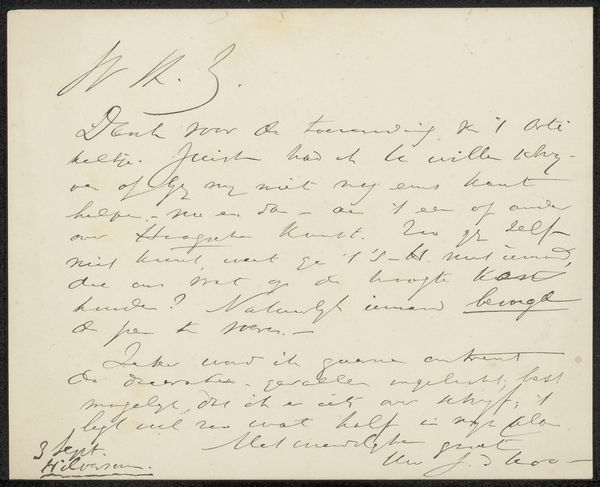 W. K. Z.
Dank voor de toezending v. 't Arti-
keltje. Juist had ik U willen schrij-
ven of Gij mij niet nog eens kunt
helpen – nu en dan – aan 't een of ander
over Haagsche Kunst. Zoo gij zelf
niet kunt, weet ge in 's-H. niet iemand,
die ons wat op de hoogte kan
houden? Natuurlijk iemand bevoegd
de pen te voeren. –
Zeker word ik gaarne omtrent
de decoratie-gevallen ingelicht; best
mogelijk, dat ik er iets over schrijf; 't
ligt wel zoo wat half in mijn plan.
Met vriendelijke groet
Uw J. d
3 Sept.
Hilversum.